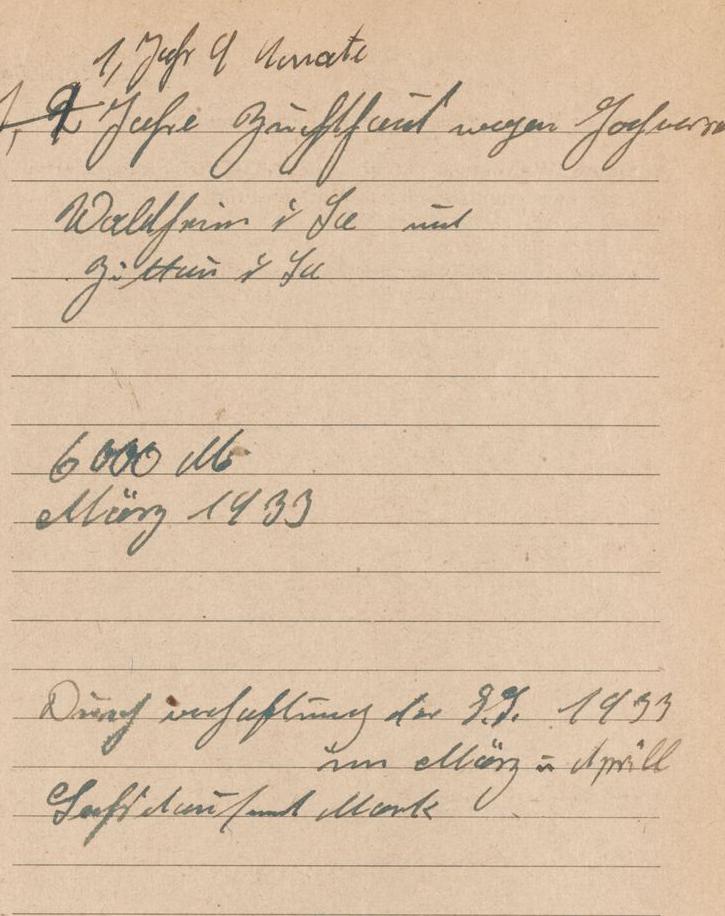 1, Jahr 9 Monate
1, 9 Jahre Zuchthaus wegen Hochverra
Waldheim i Sa und
Zittau i Sa
6000 M
März 1933
Durch verhaftung der 1933
im März u Aprill
Sechstausend Mark